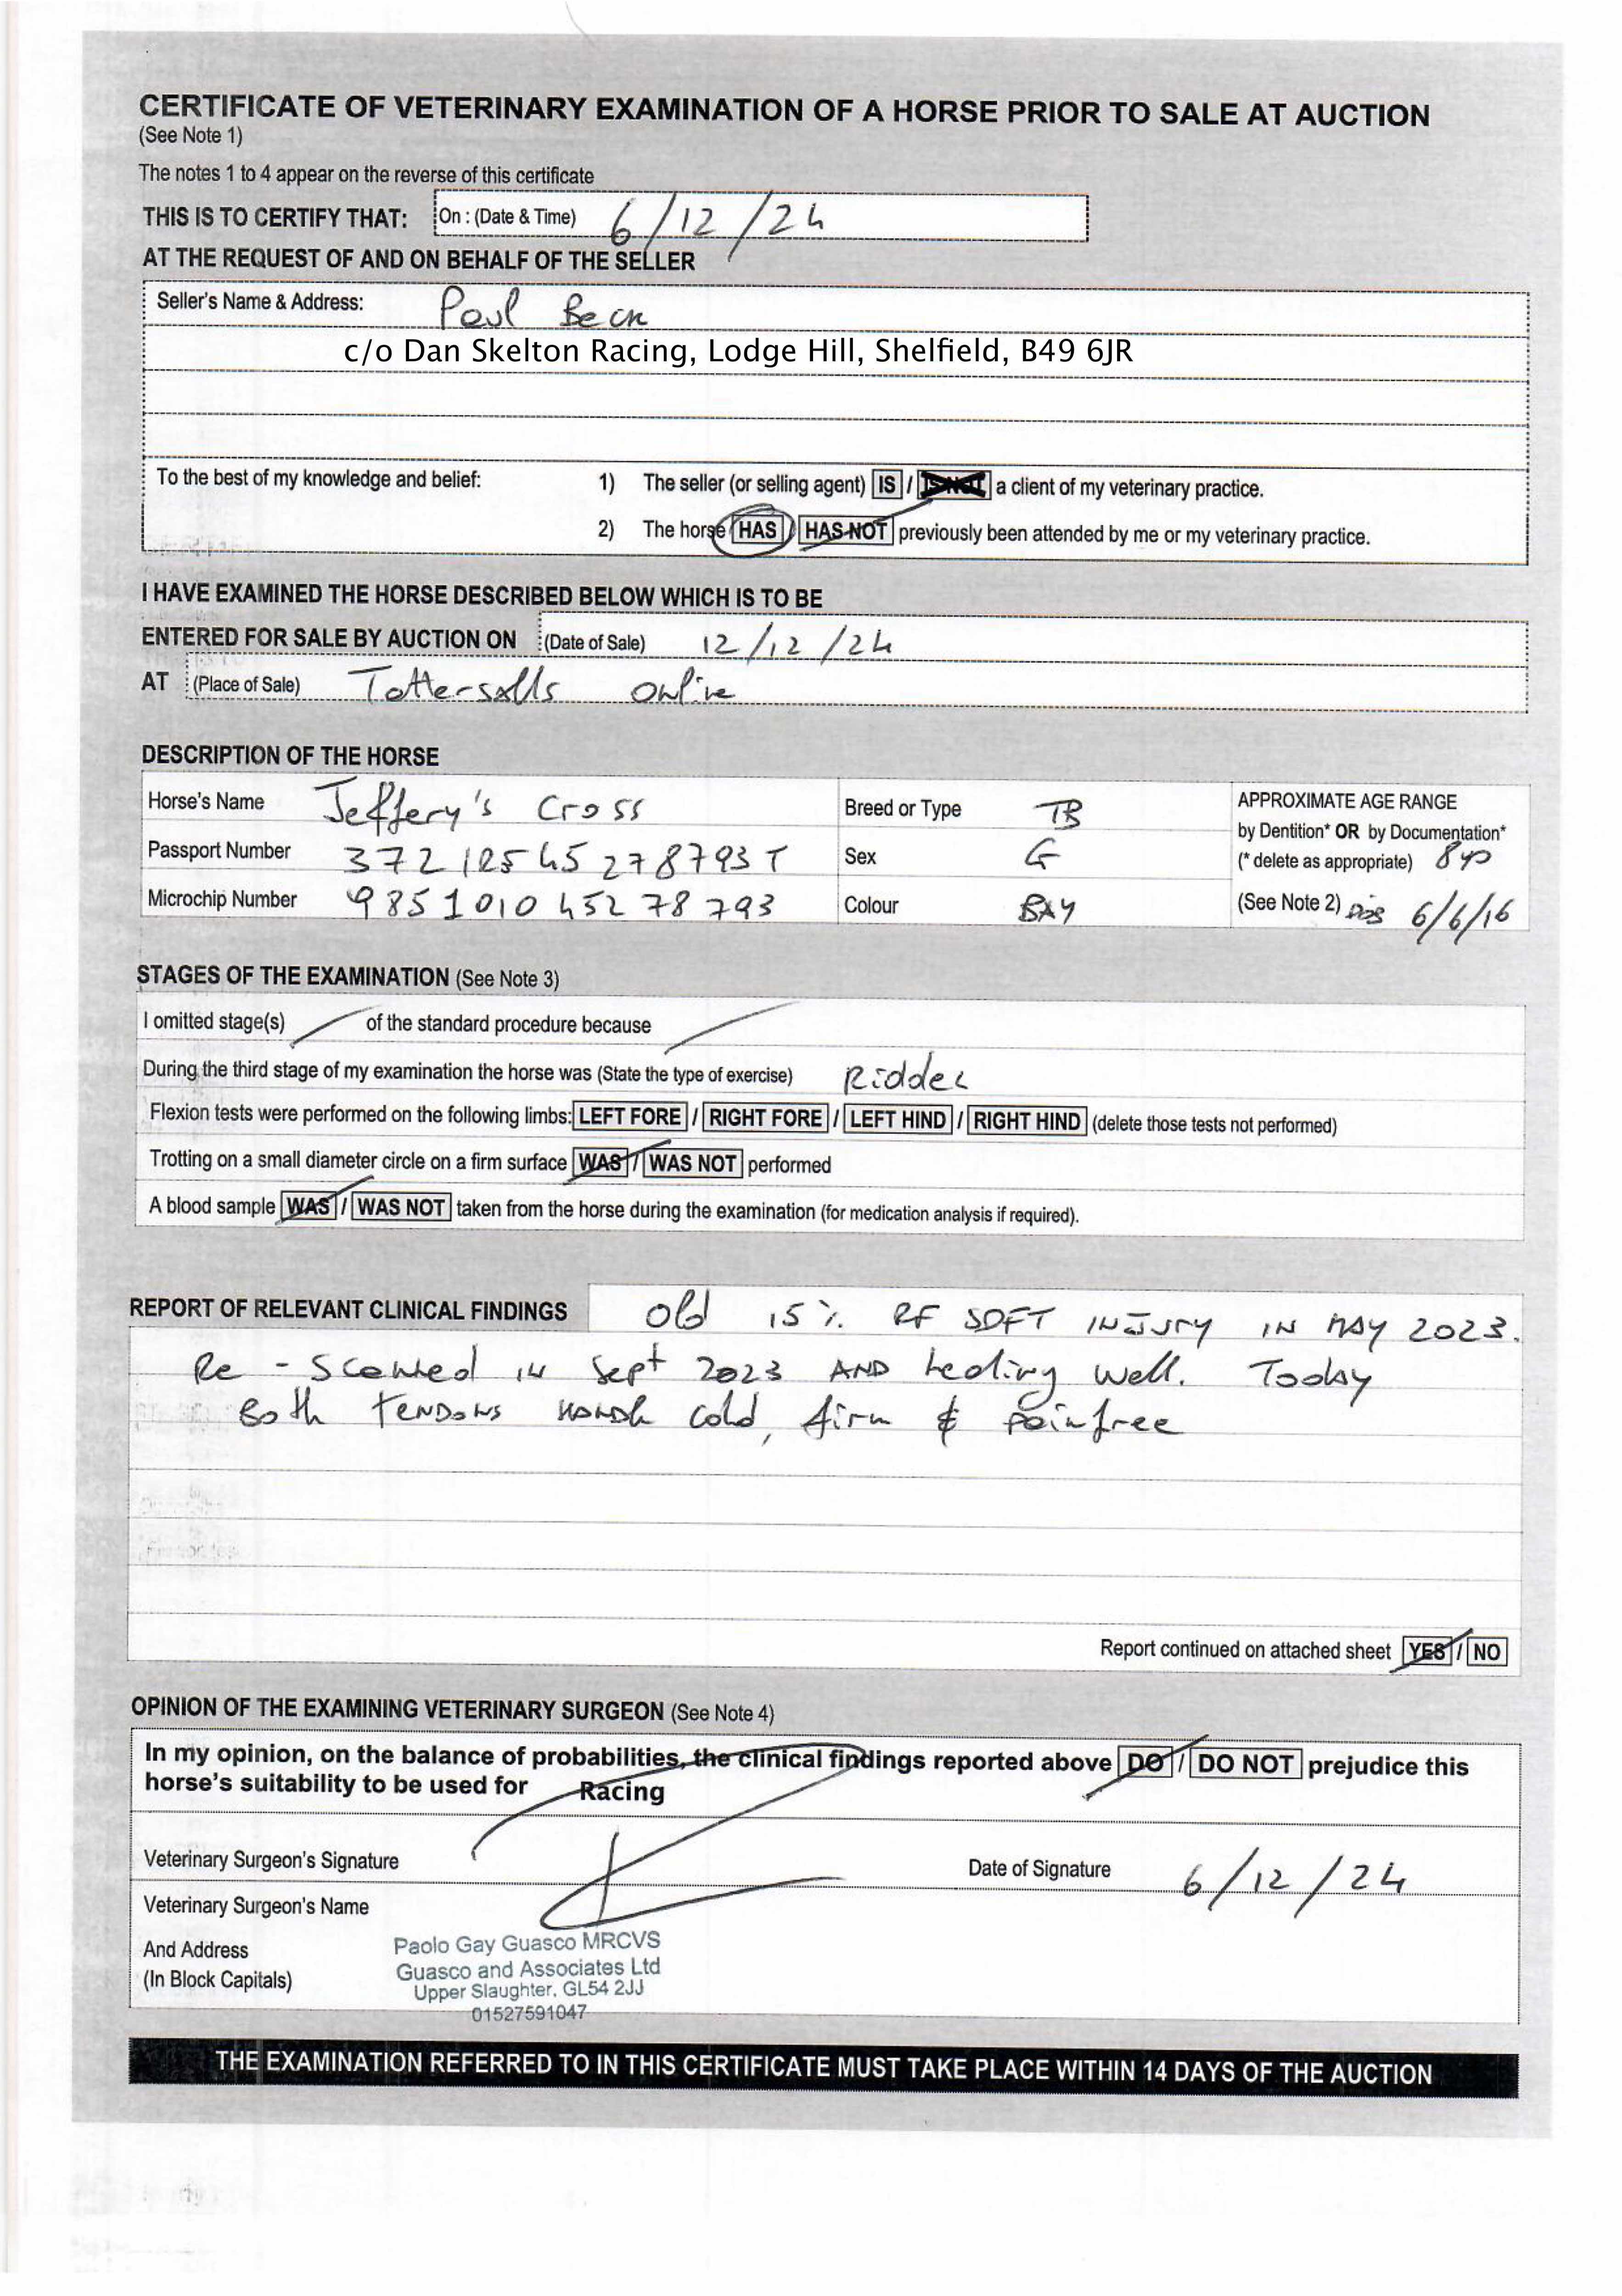 CERTIFICATE OF VETERINARY EXAMINATION OF A HORSE PRIOR TO SALE AT AUCTION
(See Note 1)
The notes 1 to 4 appear on the reverse of this certificate
THIS IS TO CERTIFY THAT: On : (Date & Time) 6/12/24
AT THE REQUEST OF AND ON BEHALF OF THE SELLER
Seller's Name & Address: Paul Beck
c/o Dan Skelton Racing, Lodge Hill, Shelfield, B49 6JR
To the best of my knowledge and belief: 1) The seller (or selling agent) IS / IS NOT a client of my veterinary practice.
2) The horse HAS / HAS NOT previously been attended by me or my veterinary practice.
I HAVE EXAMINED THE HORSE DESCRIBED BELOW WHICH IS TO BE
ENTERED FOR SALE BY AUCTION ON (Date of Sale) 12/12/24
AT (Place of Sale) Tattersalls Online
DESCRIPTION OF THE HORSE
Horse's Name Jeffery's Cross Breed or Type TB APPROXIMATE AGE RANGE
by Dentition* OR by Documentation*
Passport Number 37212545278793T Sex G (* delete as appropriate) 8yo
Microchip Number 985101045278793 Colour BAY (See Note 2) DOB 6/6/16
STAGES OF THE EXAMINATION (See Note 3)
I omitted stage(s) / of the standard procedure because /
During the third stage of my examination the horse was (State the type of exercise) Ridden
Flexion tests were performed on the following limbs: LEFT FORE / RIGHT FORE / LEFT HIND / RIGHT HIND (delete those tests not performed)
Trotting on a small diameter circle on a firm surface WAS / WAS NOT performed
A blood sample WAS / WAS NOT taken from the horse during the examination (for medication analysis if required).
REPORT OF RELEVANT CLINICAL FINDINGS Old 15% RF SDFT INJURY IN MAY 2023.
Re-Scanned in Sept 2023 AND healing well. Today
Both TENDONS HANDLE cold, firm & painfree
Report continued on attached sheet YES / NO
OPINION OF THE EXAMINING VETERINARY SURGEON (See Note 4)
In my opinion, on the balance of probabilities, the clinical findings reported above DO / DO NOT prejudice this
horse's suitability to be used for Racing
Veterinary Surgeon's Signature Date of Signature 6/12/24
Veterinary Surgeon's Name
And Address
(In Block Capitals)
Paolo Gay Guasco MRCVS
Guasco and Associates Ltd
Upper Slaughter, GL54 2JJ
01527591047
THE EXAMINATION REFERRED TO IN THIS CERTIFICATE MUST TAKE PLACE WITHIN 14 DAYS OF THE AUCTION